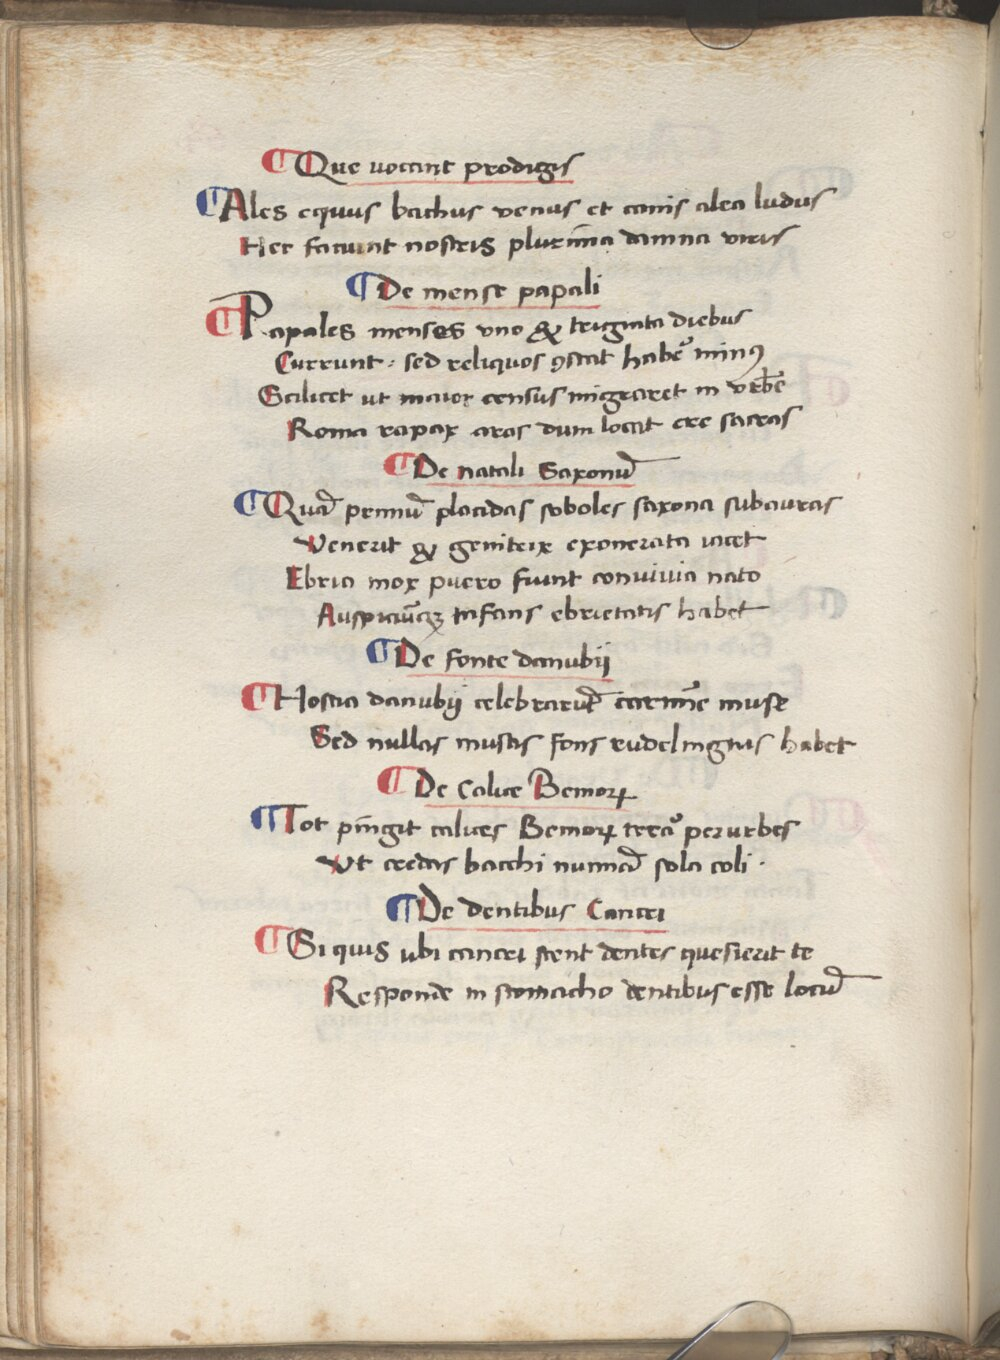 Que uocant prodigis
Ales equus bachus venus et canis alea ludus
Hec faciunt nostris plurima̅ damna viris
De mense papali
Papales menses vno & triginta diebus
Currunt · sed reliquos ꝯstat haber̉ minꝰ
Scilicet ut maior census migraret in vrbe̅
Roma rapax aras dum locat ere sacras
De natali Saxonu̅
Qua̅ primu̅ placidas soboles saxona sub auras
Venerit & genitrix exonerata iacet
Ebria mox puero fiunt conuiuia nato
Auspiciu̅qꝫ infans ebrietatis habet
De fonte danubij
Hostia danubij celebraru̅t carmi̅e muse
Sed nullas musas fons rudel habet
De Calice Bemoꝝ
Tot pingit calices Bemoꝝ terra̓ per urbes
Vt credas bacchi numina̅ sola coli ·
De dentibus Cancri
Si quis ubi cancri stent dentes quesierit te
Responde in stomacho dentibus esse locu̅